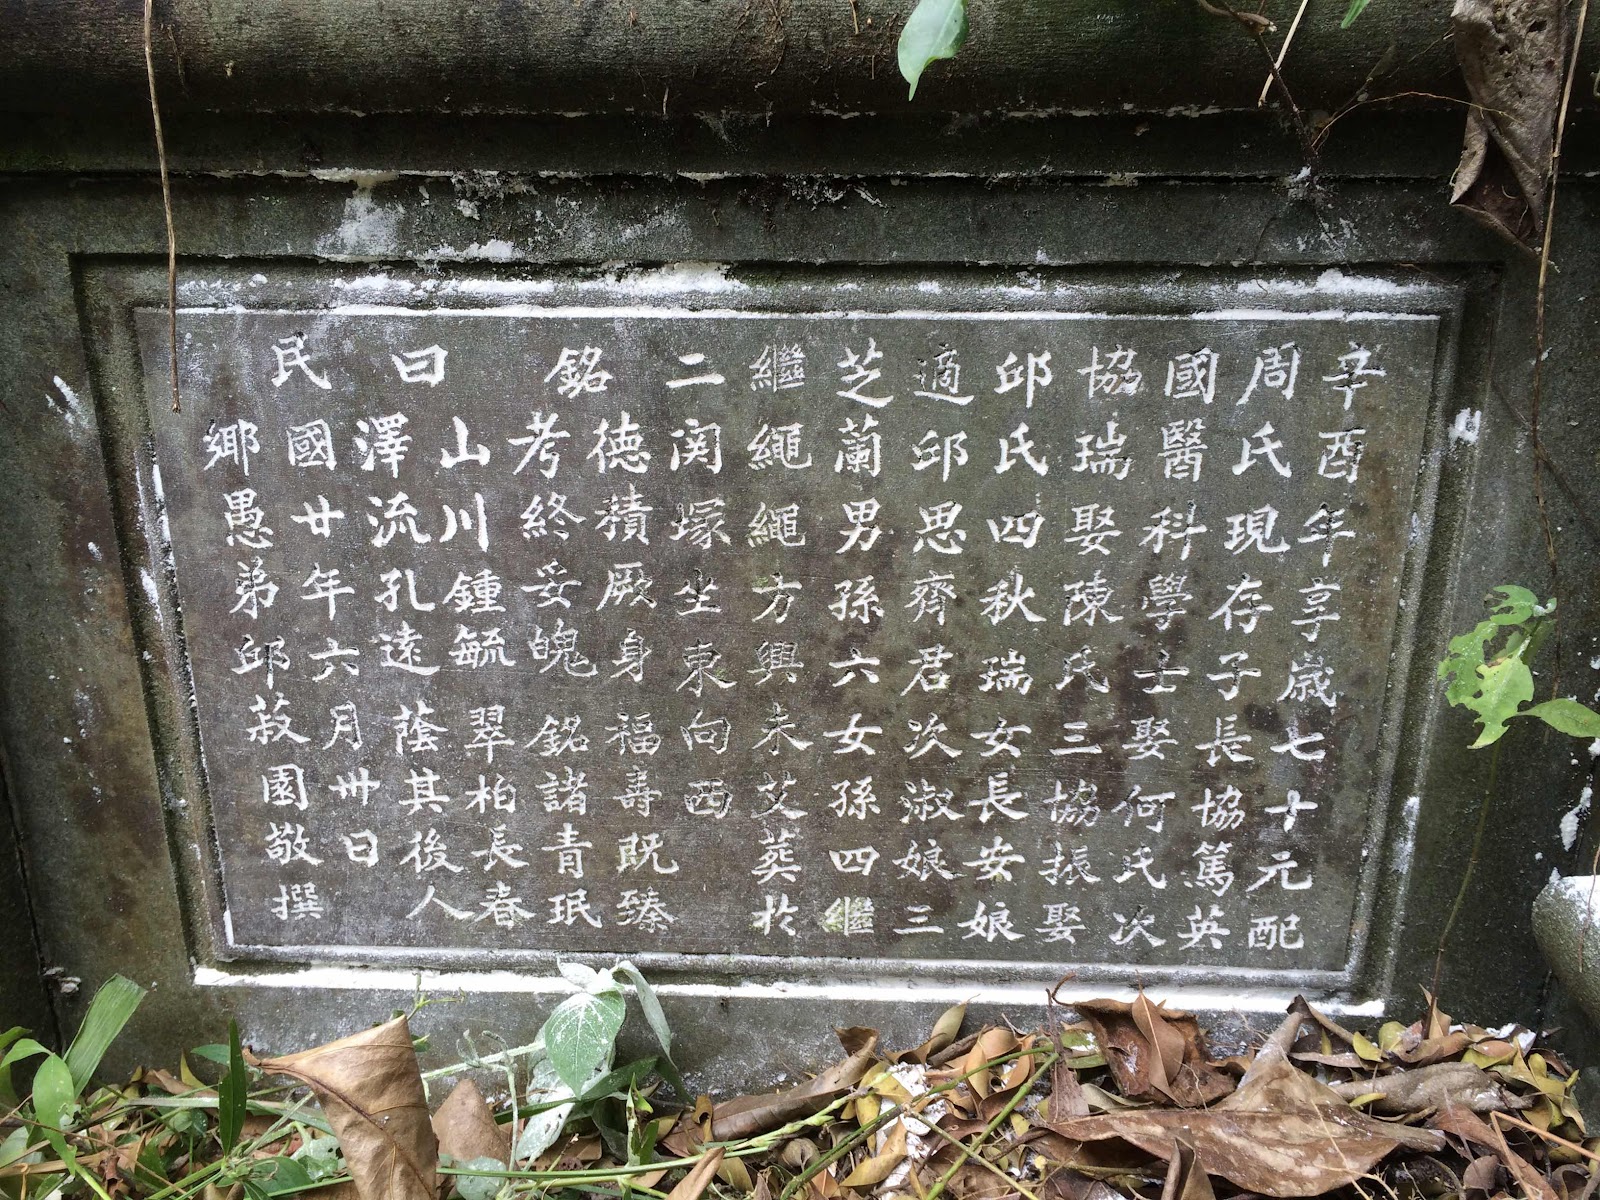 辛酉年享歲七十元配
周氏現存子長協篤英
國醫科學士娶何氏次
協瑞娶陳氏三協振娶
邱氏四秋瑞女長安娘
適邱思齊君次淑娘三
芝蘭男孫六女孫四繼
繼繩繩方興未艾葬於
二塚坐東向西
銘曰
德積厥身 福壽既臻
考終妥魄 銘諸青珉
山川鍾毓 翠柏長春
澤流孔遠 蔭其後人
民國廿年六月卅日
鄉愚弟邱菽園敬撰